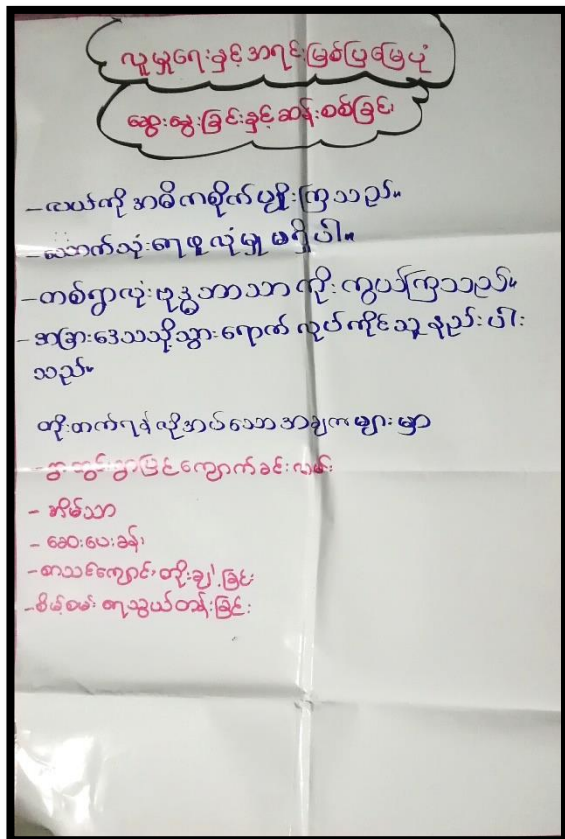 လူမှုရေးနှင့်အရင်းမြစ်ပြမြေပုံ
ဆွေးနွေးခြင်းနှင့်ဆန်းစစ်ခြင်း
-လယ်ကိုအဓိကစိုက်ပျိုးကြသည်။
-သောက်သုံးရေဖူလုံမှုမရှိပါ။
-တစ်ရွာလုံးဗုဒ္ဓဘာသာကိုးကွယ်ကြသည်။
-အခြားဒေသသို့သွားရောက်လုပ်ကိုင်သူနည်းပါး
သည်။
တိုးတက်ရန်လိုအပ်သောအချက်များမှာ
-ရွာတွင်းရွာပြင်ကျောက်ခင်းလမ်း
-အိမ်သာ
-ဆေးပေးခန်း
-စာသင်ကျောင်းတိုးချဲ့ခြင်း
-စိမ့်စမ်းရေသွယ်တန်းခြင်း